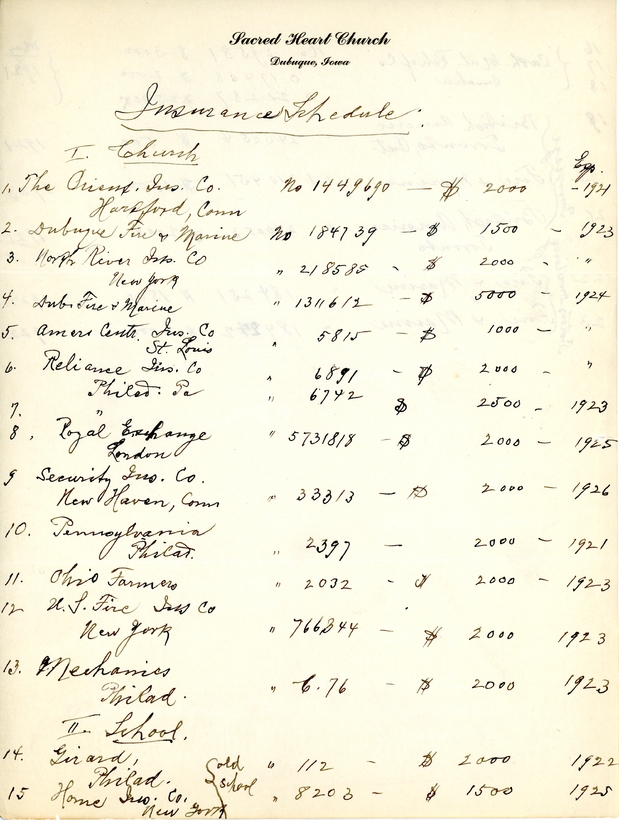 Sacred Heart Church
Dubuque, Iowa
Insurance Schedule.
I. Church
Exp.
1. The Orient. Ins. Co. No 1449690 — $ 2000 — 1921
Hartford, Conn
2. Dubuque Fire & Marine No 184739 — $ 1500 — 1923
3. North River Ins. Co " 218585 - $ 2000 — "
New York
4. Dub. Fire & Marine " 1311612 - $ 5000 — 1924
5. Amer. Centr. Ins. Co " 5815 — $ 1000 — "
St. Louis
6. Reliance Ins. Co " 6891 — $ 2000 — "
Philad. Pa " 6742 $ 2500 - 1923
7. "
8. Royal Exchange " 5731818 — $ 2000 — 1925
London
9 Security Ins. Co. " 33313 — $ 2000 — 1926
New Haven, Conn
10. Pennsylvania " 2397 — 2000 — 1921
Philad.
11. Ohio Farmers " 2032 - $ 2000 — 1923
12 U.S. Fire Ins Co " 766844 — $ 2000 1923
New York
13. Mechanics
Philad. " C.76 — $ 2000 1923
II. School.
14. Girard, old " 112 — $ 2000 1922
Philad. school
15 Home Ins. Co. " 8203 — $ 1500 1925
New York